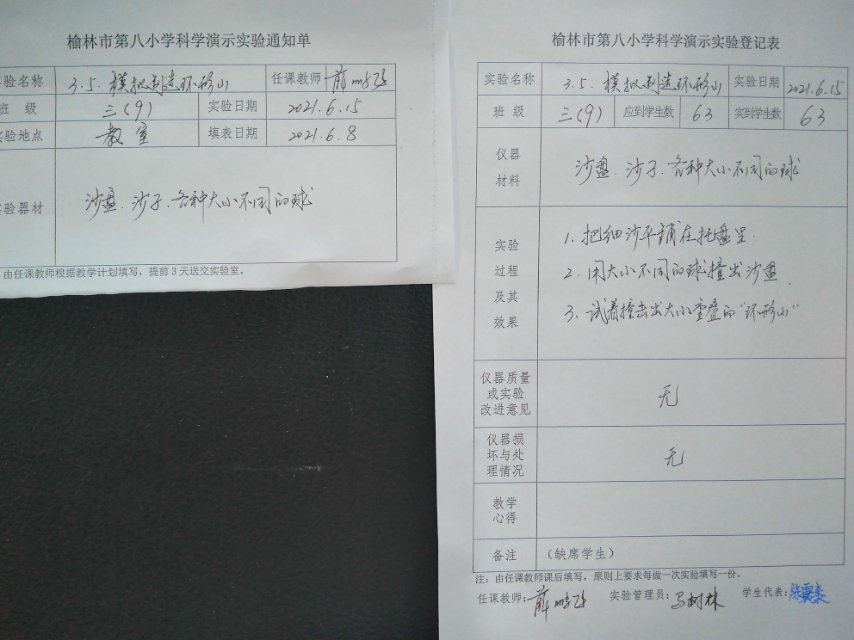 榆林市第八小学科学演示实验通知单
实验名称 3.5.模拟制造环形山 任课教师
班 级 三(9) 实验日期 2021.6.15
实验地点 教室 填表日期 2021.6.8
实验器材 沙盘.沙子.各种大小不同的球
由任课教师根据教学计划填写，提前3天送交实验室。
榆林市第八小学科学演示实验登记表
实验名称 3.5.模拟制造环形山 实验日期 2021.6.15
班 级 三(9) 应到学生数 63 实到学生数 63
仪器
材料
沙盘.沙子.各种大小不同的球
实验
过程
及其
效果
1.把细沙平铺在托盘里.
2.用大小不同的球撞击沙盘.
3.试着撞击出大小重叠的“环形山”
仪器质量
或实验
改进意见
无
仪器损
坏与处
理情况
无
教学
心得
备注 （缺席学生）
注：由任课教师课后填写，原则上要求每做一次实验填写一份。
任课教师： 实验管理员：马树林 学生代表：